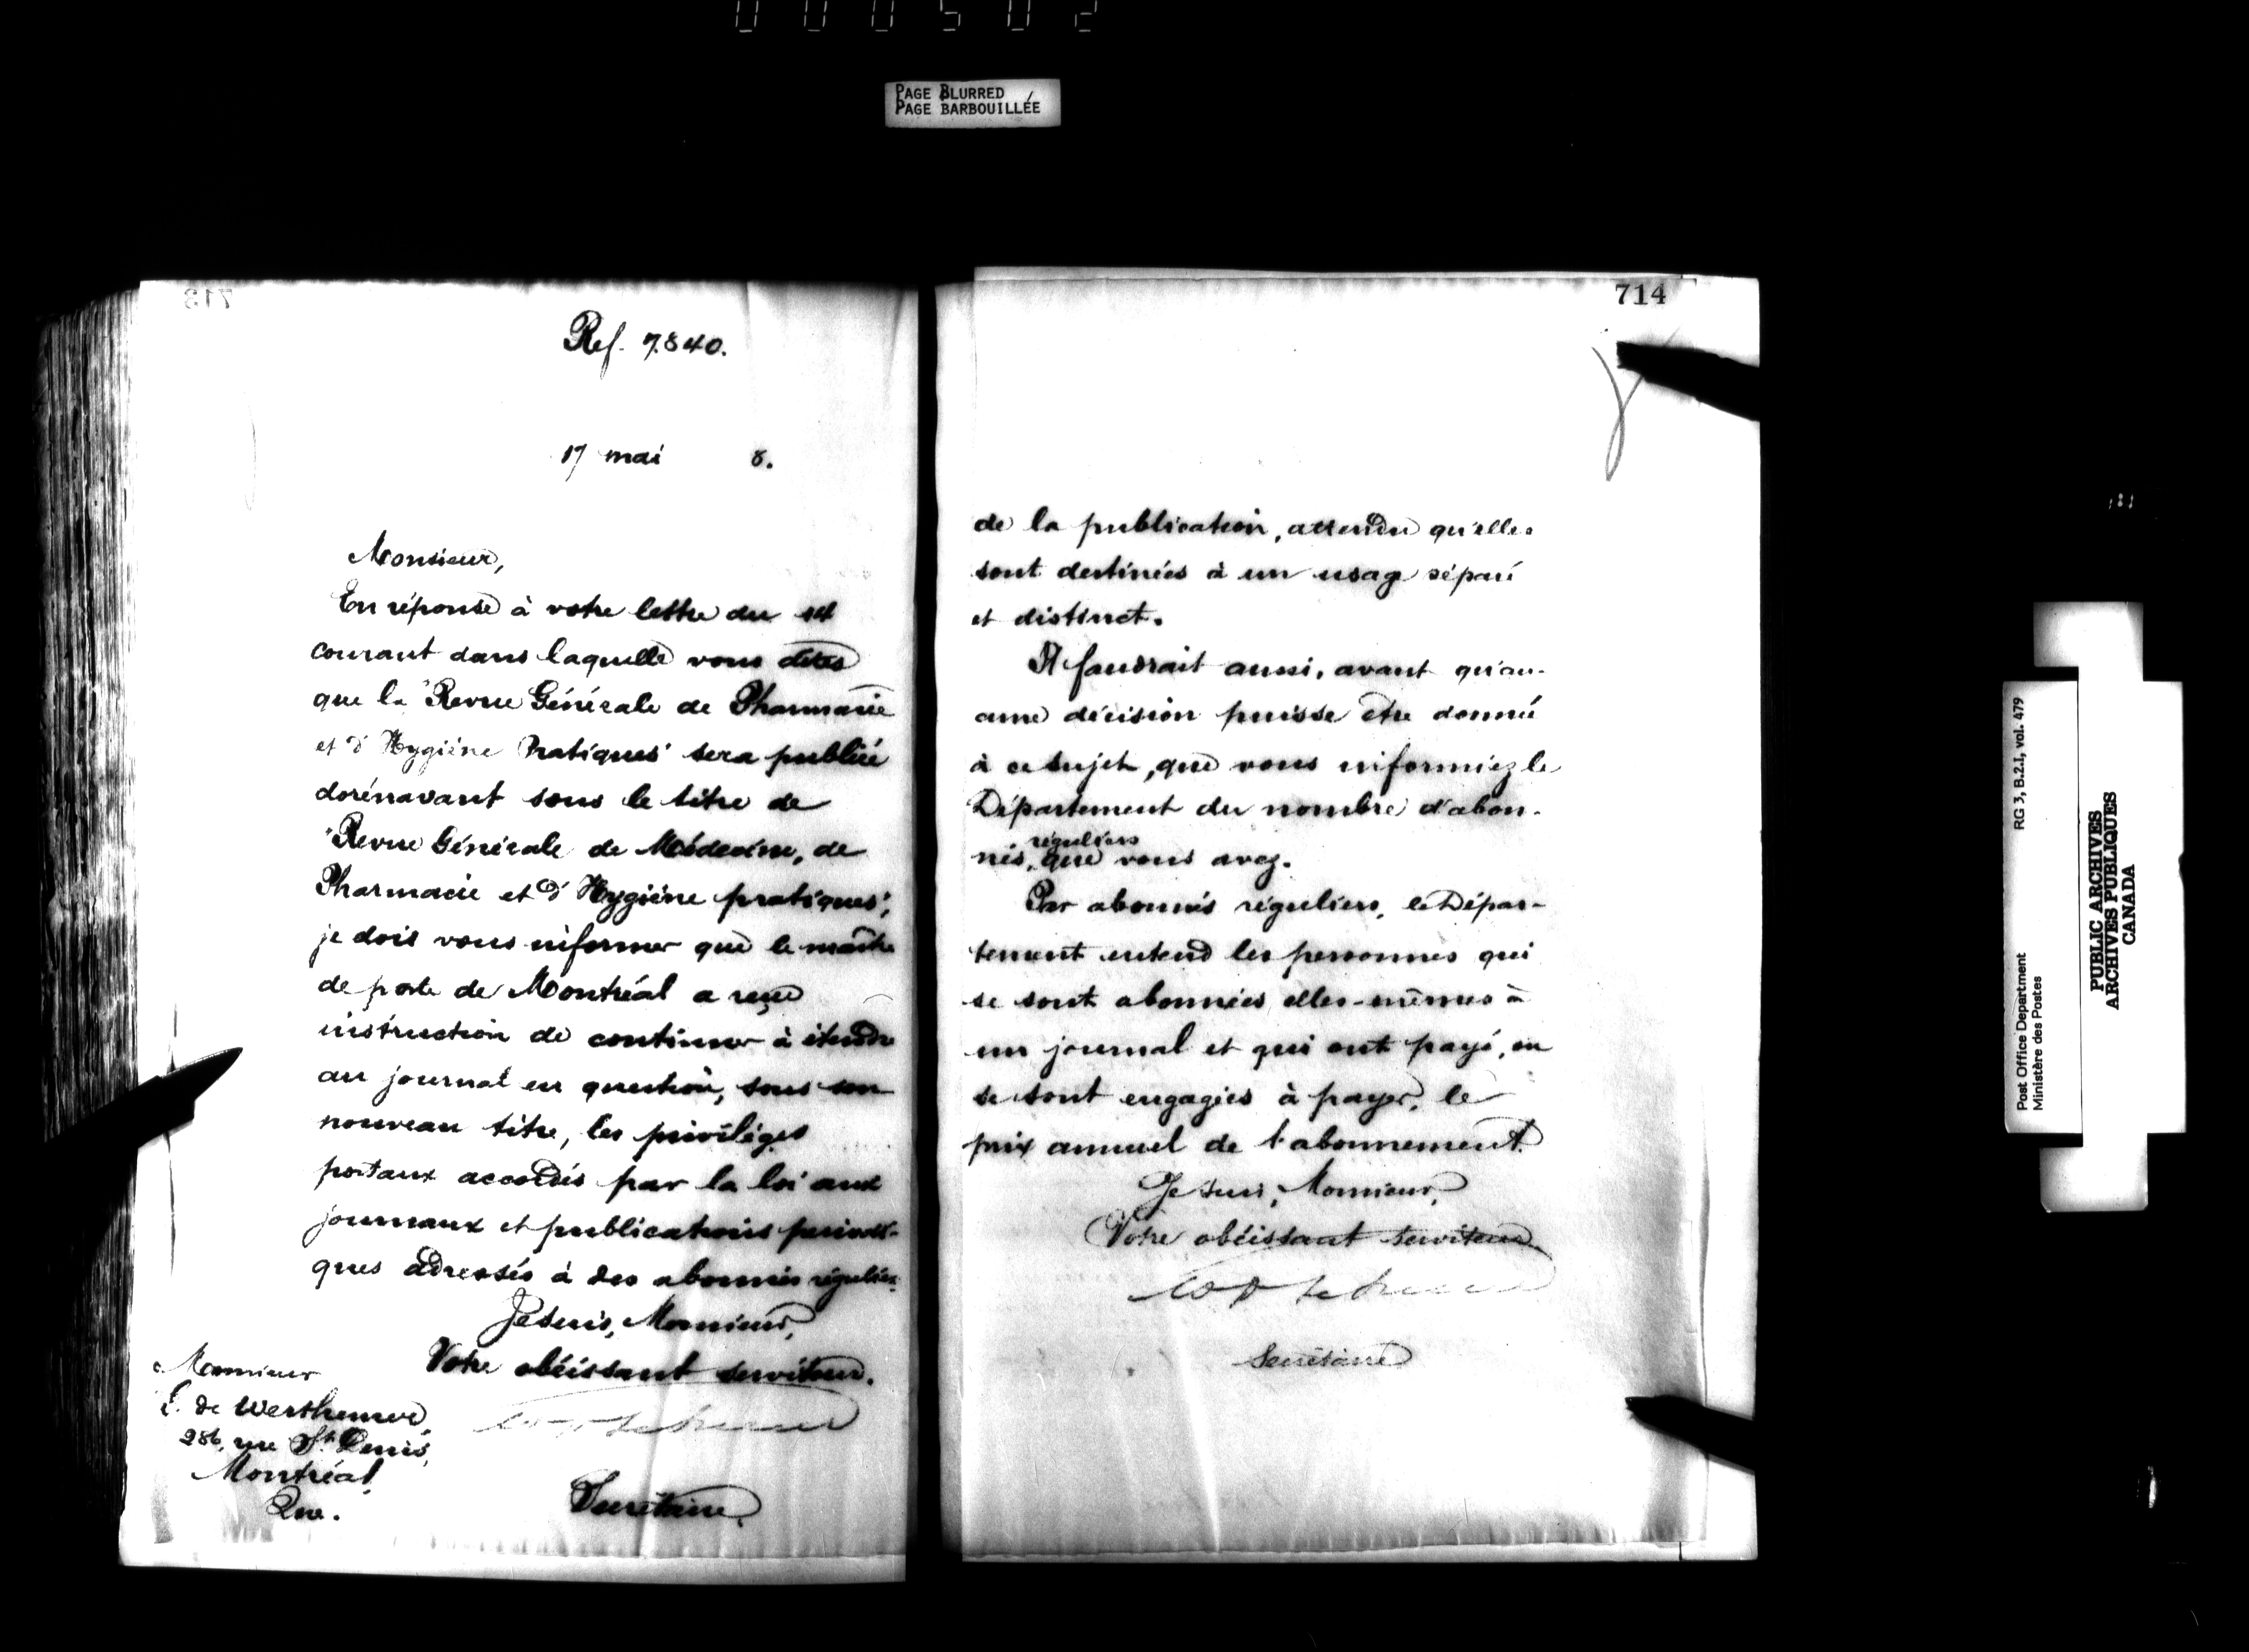 PAGE BLURRED
PAGE BARBOUILLÉE
713
Ref. 7840.
17 mai 8.
Monsieur,
En réponse à votre lettre du 14
courant dans laquelle vous dites
que la "Revue Générale de Pharmacie
et d'Hygiène Pratiques" sera publiée
dorénavant sous le titre de
"Revue Générale de Médecine, de
Pharmacie et d'Hygiène pratiques",
je dois vous informer que le maître
de poste de Montréal a reçu
instruction de continuer à étendre
au journal en question, sous son
nouveau titre, les privilèges
postaux accordés par la loi aux
journaux et publications périodi-
ques adressés à des abonnés réguliers.
Je suis, Monsieur,
Votre obéissant serviteur.
Secrétaire.
Monsieur
E. de Werthemer,
286, rue St. Denis,
Montréal,
Que.
714
de la publication, attendu qu'elles
sont destinées à un usage séparé
et distinct.
Il faudrait aussi, avant qu'au-
cune décision puisse être donnée
à ce sujet, que vous informiez le
Département du nombre d'abon-
réguliers
nés, que vous avez.
Par abonnés réguliers, le Dépar-
tement entend les personnes qui
se sont abonnées elles-mêmes à
un journal et qui ont payé, ou
se sont engagées à payer, le
prix annuel de l'abonnement.
Je suis, Monsieur,
Votre obéissant serviteur
Secrétaire
Post Office Department RG 3, B.2.I, vol. 479
Ministère des Postes
PUBLIC ARCHIVES
ARCHIVES PUBLIQUES
CANADA